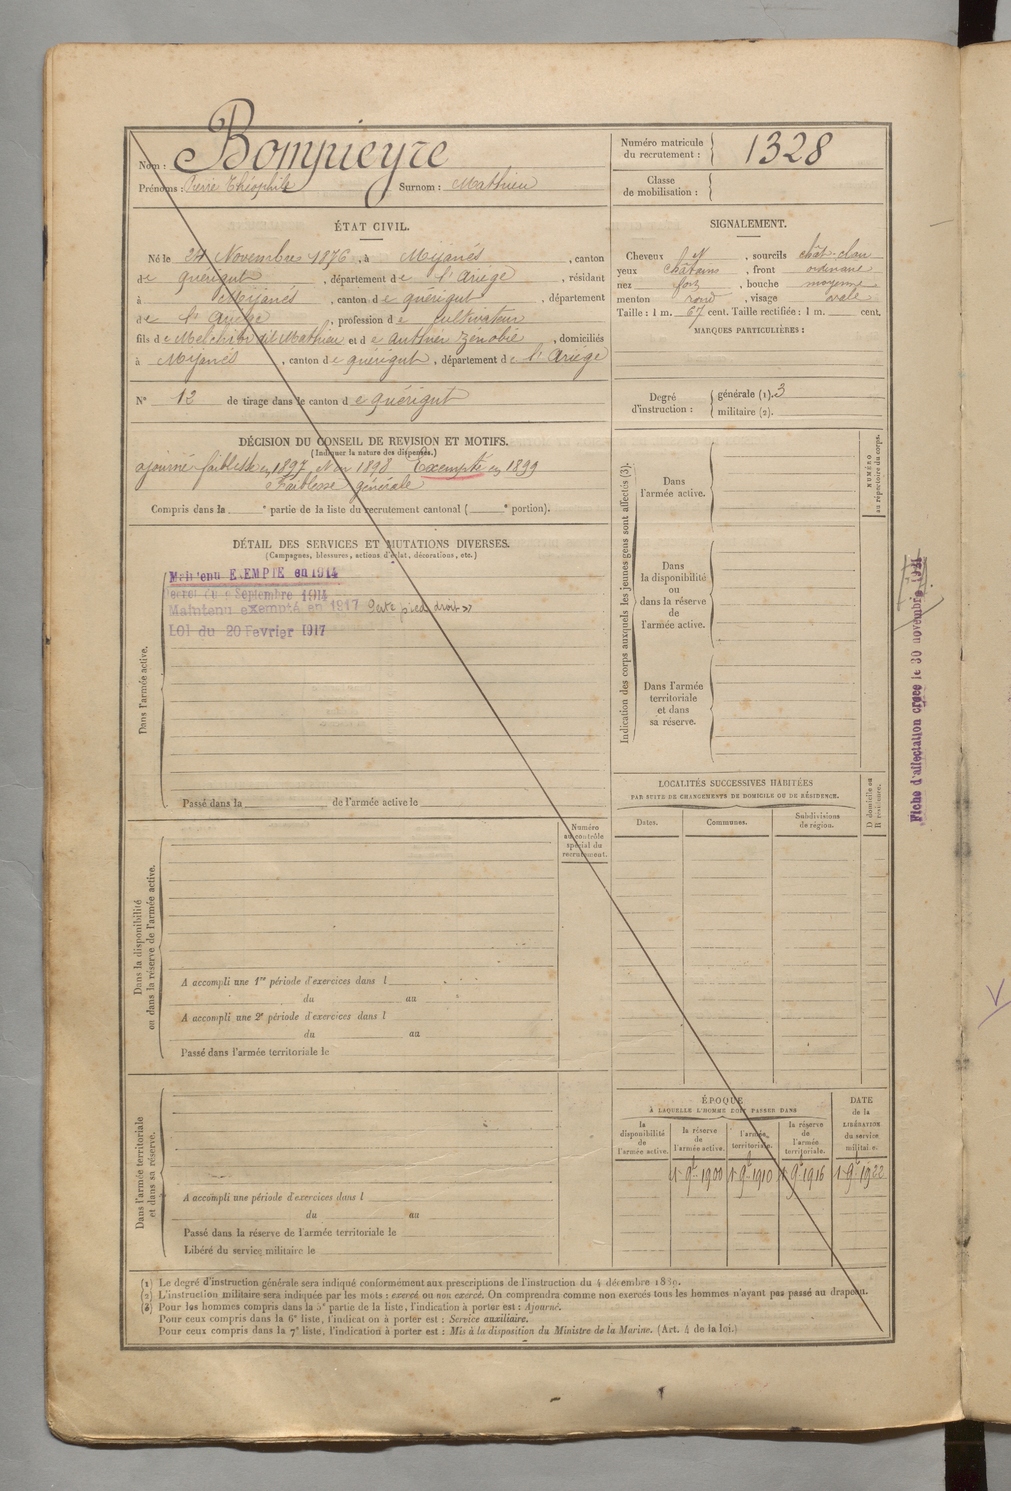 Nom : Bompieyre
Prénoms : Pierre Théophile Surnom : Mathieu
Numéro matricule du recrutement : 1328
Classe de mobilisation :
ÉTAT CIVIL.
Né le 24 Novembre 1876, à Mijanès, canton
de Quérigut, département de l'Ariège, résidant
à Mijanès, canton de Quérigut, département
de l'Ariège, profession de cultivateur
fils de Melchior dit Mathieu et de Authier Zénobie, domiciliés
à Mijanès, canton de Quérigut, département de l'Ariège
N° 12 de tirage dans le canton de Quérigut
SIGNALEMENT.
Cheveux , sourcils chât-clair
yeux châtains, front ordinaire
nez , bouche moyenne
menton rond, visage ovale
Taille : 1 m. 67 cent. Taille rectifiée : 1 m. cent.
MARQUES PARTICULIÈRES :
Degré d'instruction : générale (1). 3
militaire (2).
DÉCISION DU CONSEIL DE REVISION ET MOTIFS.
(Indiquer la nature des dispenses.)
ajourné faiblesse en 1897, et en 1898 Exempté en 1899
Faiblesse générale
Compris dans la e partie de la liste du recrutement cantonal ( e portion).
DÉTAIL DES SERVICES ET MUTATIONS DIVERSES.
(Campagnes, blessures, actions d'éclat, décorations, etc.)
Dans l'armée active.
Maintenu EXEMPTÉ en 1914
Décret du 9 Septembre 1914
Maintenu exempté en 1917 Perte pied droit »
LOI du 20 Fevrier 1917
Passé dans la de l'armée active le
Indication des corps auxquels les jeunes gens sont affectés (3).
Dans l'armée active.
Dans la disponibilité ou dans la réserve de l'armée active.
Dans l'armée territoriale et dans sa réserve.
NUMÉRO au répertoire du corps.
Fiche d'affectation créée le 30 novembre
LOCALITÉS SUCCESSIVES HABITÉES
PAR SUITE DE CHANGEMENTS DE DOMICILE OU DE RÉSIDENCE.
Dates. Communes. Subdivisions de région. D domicile ou R résidence.
Dans la disponibilité ou dans la réserve de l'armée active.
Numéro au contrôle spécial du recrutement.
A accompli une 1re période d'exercices dans l
du au
A accompli une 2e période d'exercices dans l
du au
Passé dans l'armée territoriale le
Dans l'armée territoriale et dans sa réserve.
A accompli une période d'exercices dans l
du au
Passé dans la réserve de l'armée territoriale le
Libéré du service militaire le
ÉPOQUE
À LAQUELLE L'HOMME DOIT PASSER DANS
DATE de la LIBÉRATION du service militaire.
la disponibilité de l'armée active. la réserve de l'armée active. l'armée territoriale. la réserve de l'armée territoriale.
1er 9bre 1900 1er 9bre 1910 1er 9bre 1916 1er 9bre 1922
(1) Le degré d'instruction générale sera indiqué conformément aux prescriptions de l'instruction du 4 décembre 1889.
(2) L'instruction militaire sera indiquée par les mots : exercé ou non exercé. On comprendra comme non exercés tous les hommes n'ayant pas passé au drapeau.
(3) Pour les hommes compris dans la 5e partie de la liste, l'indication à porter est : Ajourné.
Pour ceux compris dans la 6e liste, l'indication à porter est : Service auxiliaire.
Pour ceux compris dans la 7e liste, l'indication à porter est : Mis à la disposition du Ministre de la Marine. (Art. 4 de la loi.)